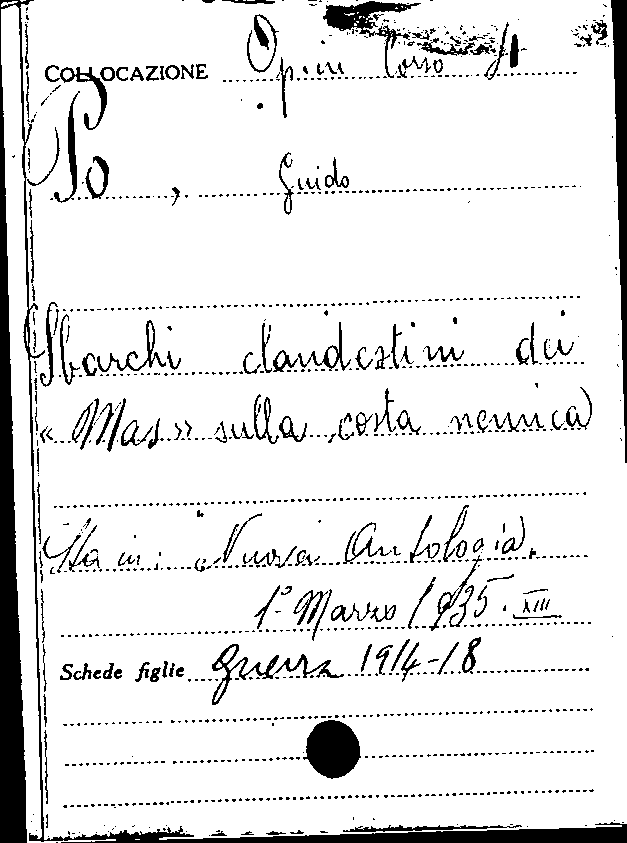 COLLOCAZIONE Opini Corso
Po, Guido
Sbarchi clandestini dei
« Mas » sulla costa nemica
Sta in: "Nuova Antologia".
1° Marzo 1935. XIII
Schede figlie Guerra 1914-18